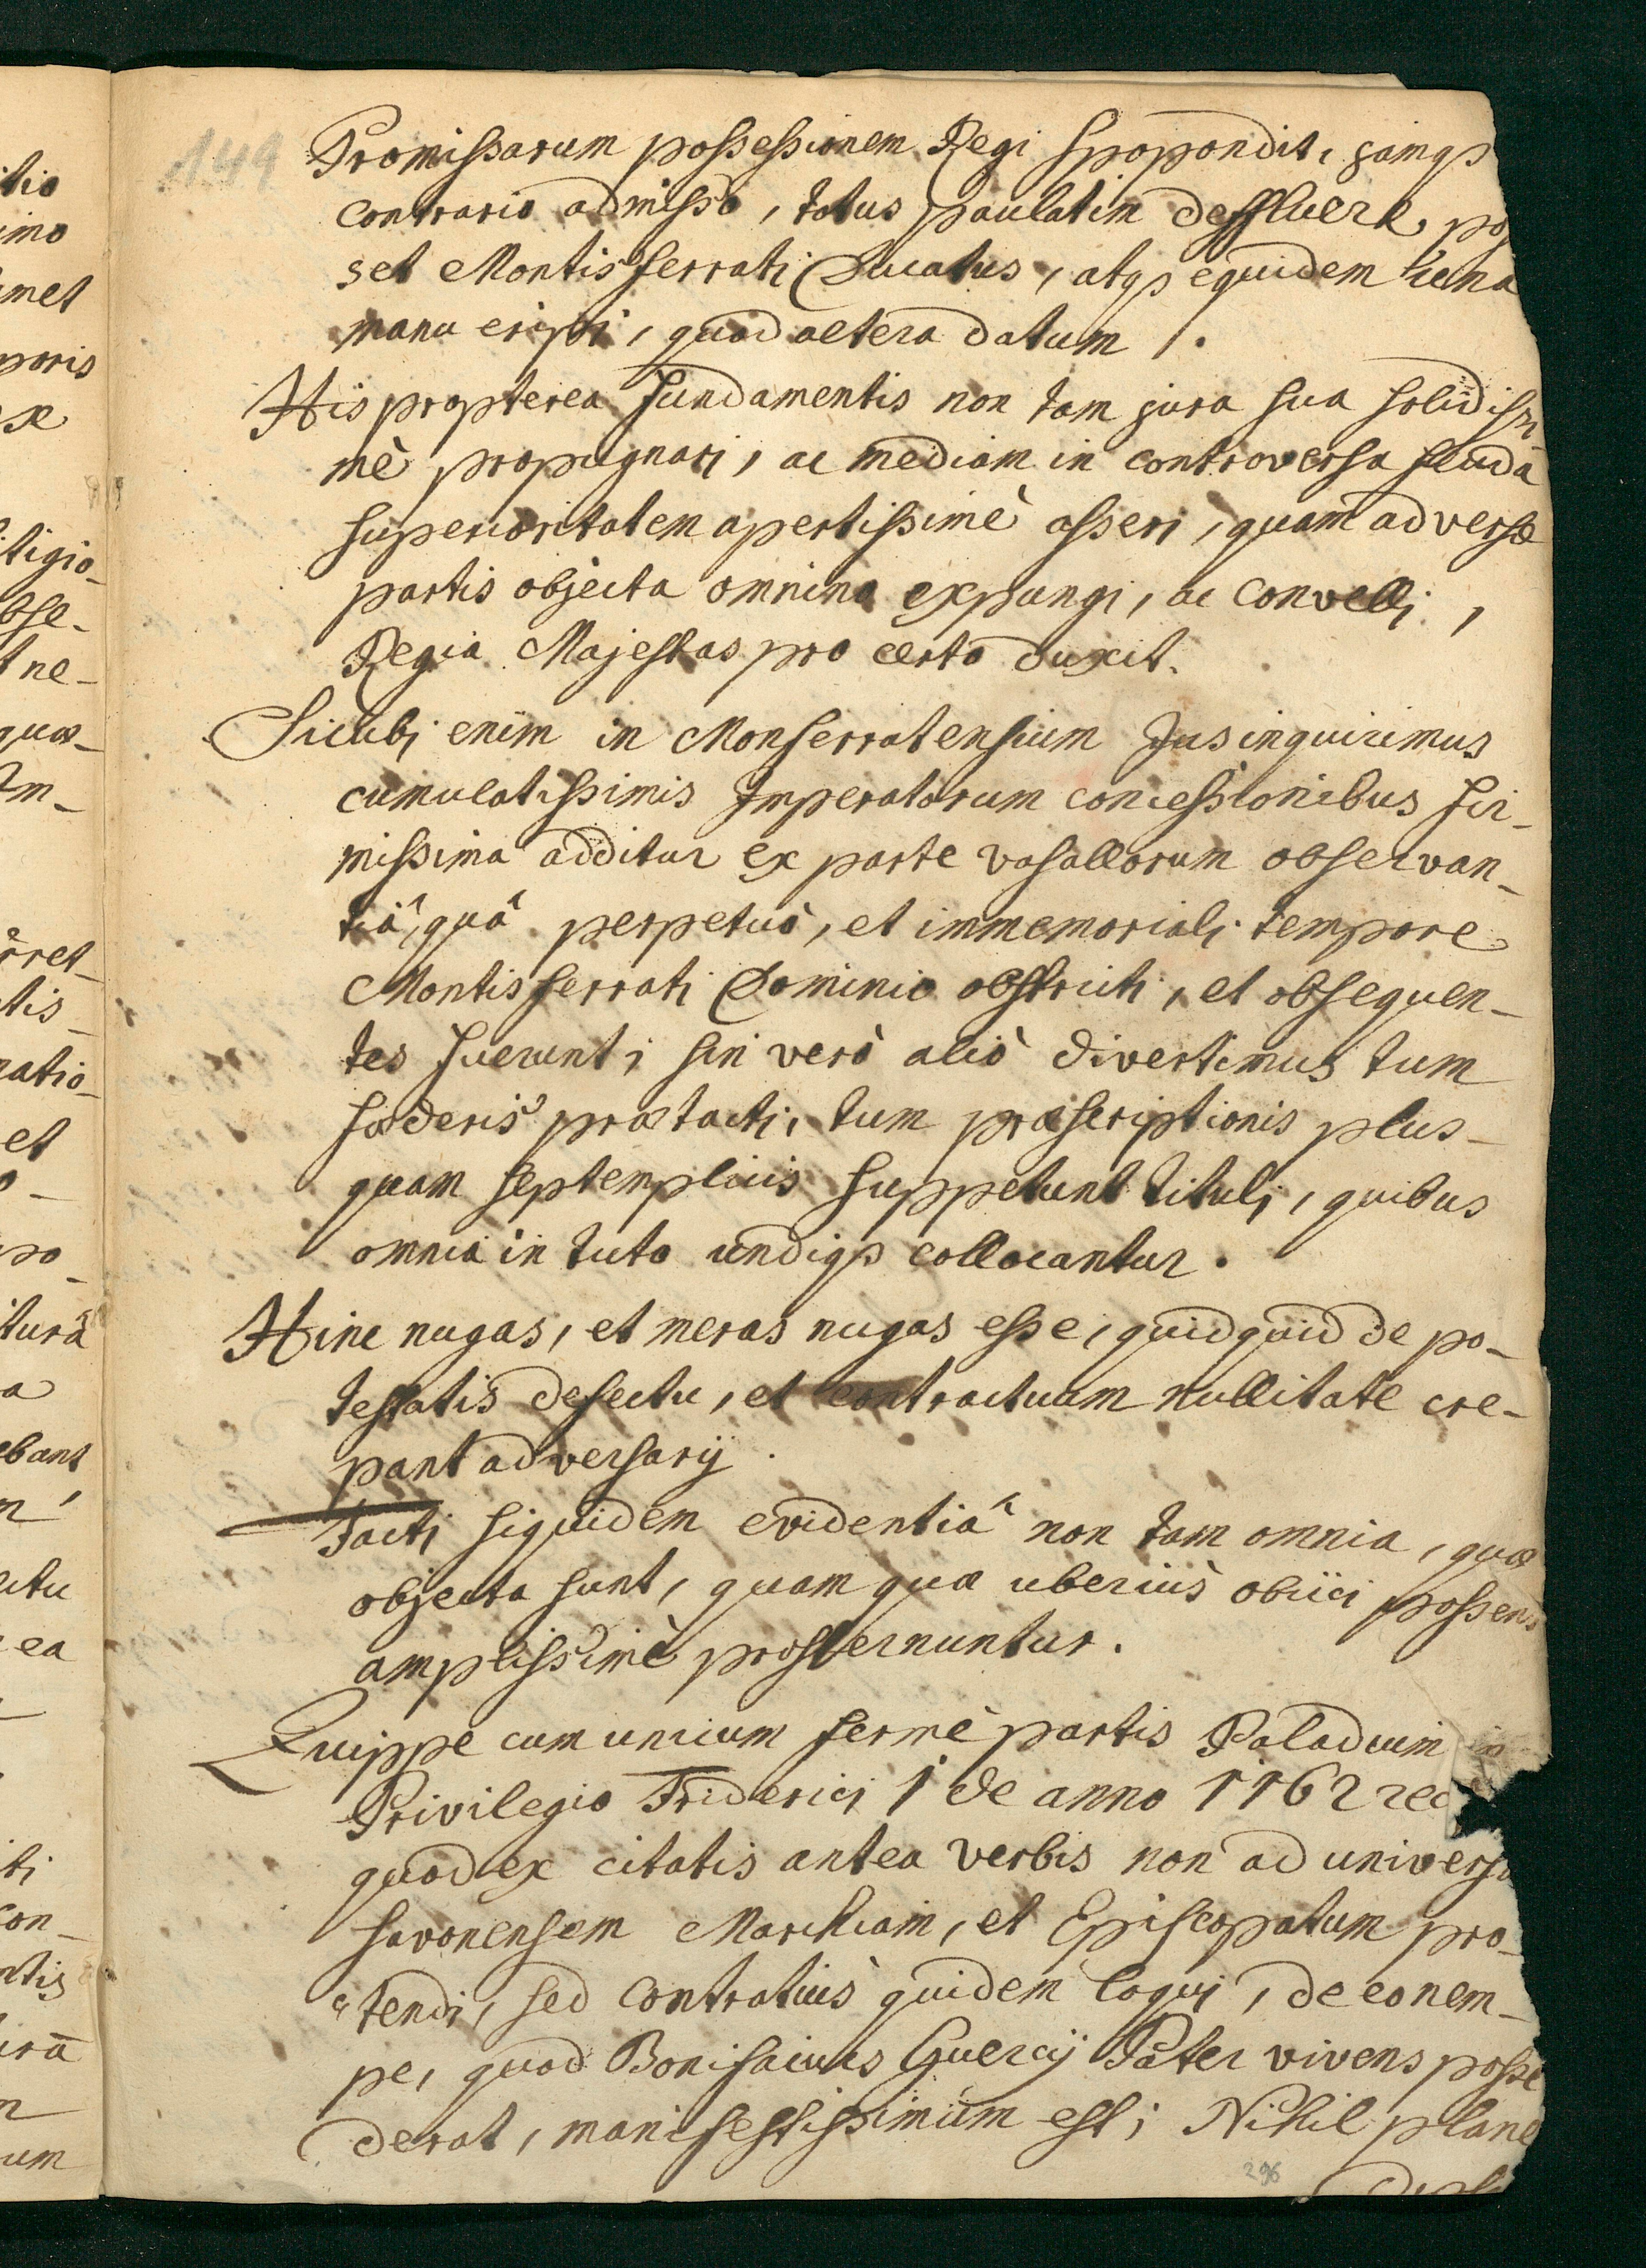 149
Promissarum possessionem Regi spopondit, jamqs
contrario admisso, totus paulatim deffluere, pos
set Montisferrati Ducatus, atqs equidem una
manu eripi, quod altera datum.
His propterea fundamentis non tam jura sua solidissi
mè propugnari, ac mediam in controversa feuda
superioritatem apertissimè asseri, quam adversæ
partis objecta omnino expungi, ac convelli,
Regia Majestas pro certo duxit.
Sicubi enim in Monferratensium Jus inquirimus
cumulatissimis Imperatorum concessionibus fir-
missima additur ex parte vasallorum observan-
tiâ, quâ perpetuò, et immemoriali tempore
Montisferrati Dominio obstricti, et obsequen-
tes fuerunt; sin verò aliò divertimus tum
fœderis prætacti, tum præscriptionis plus-
quam septemplicis suppetunt tituli, quibus
omnia in tuto undiqs collocantur.
Hinc nugas, et meras nugas esse, quidquid de po-
testatis defectu, et contractuum nullitate cre-
pant adversarij.
Facti siquidem evidentiâ non tam omnia, quæ
objecta sunt, quam quæ uberiùs obiici possent
amplissimè prosternuntur.
Quippe cum unicum fermè partis Paladium in
Privilegio Friderici 1 de anno 1162 rec
quod ex citatis antea verbis non ad universa
savonensem Marchiam, et Episcopatum pro-
tendi, sed contratiùs quidem loqui, de eo nem-
pe, quod Bonifacius Guercij Pater vivens posse
derat, manifestissimùm est; Nihil planè
296